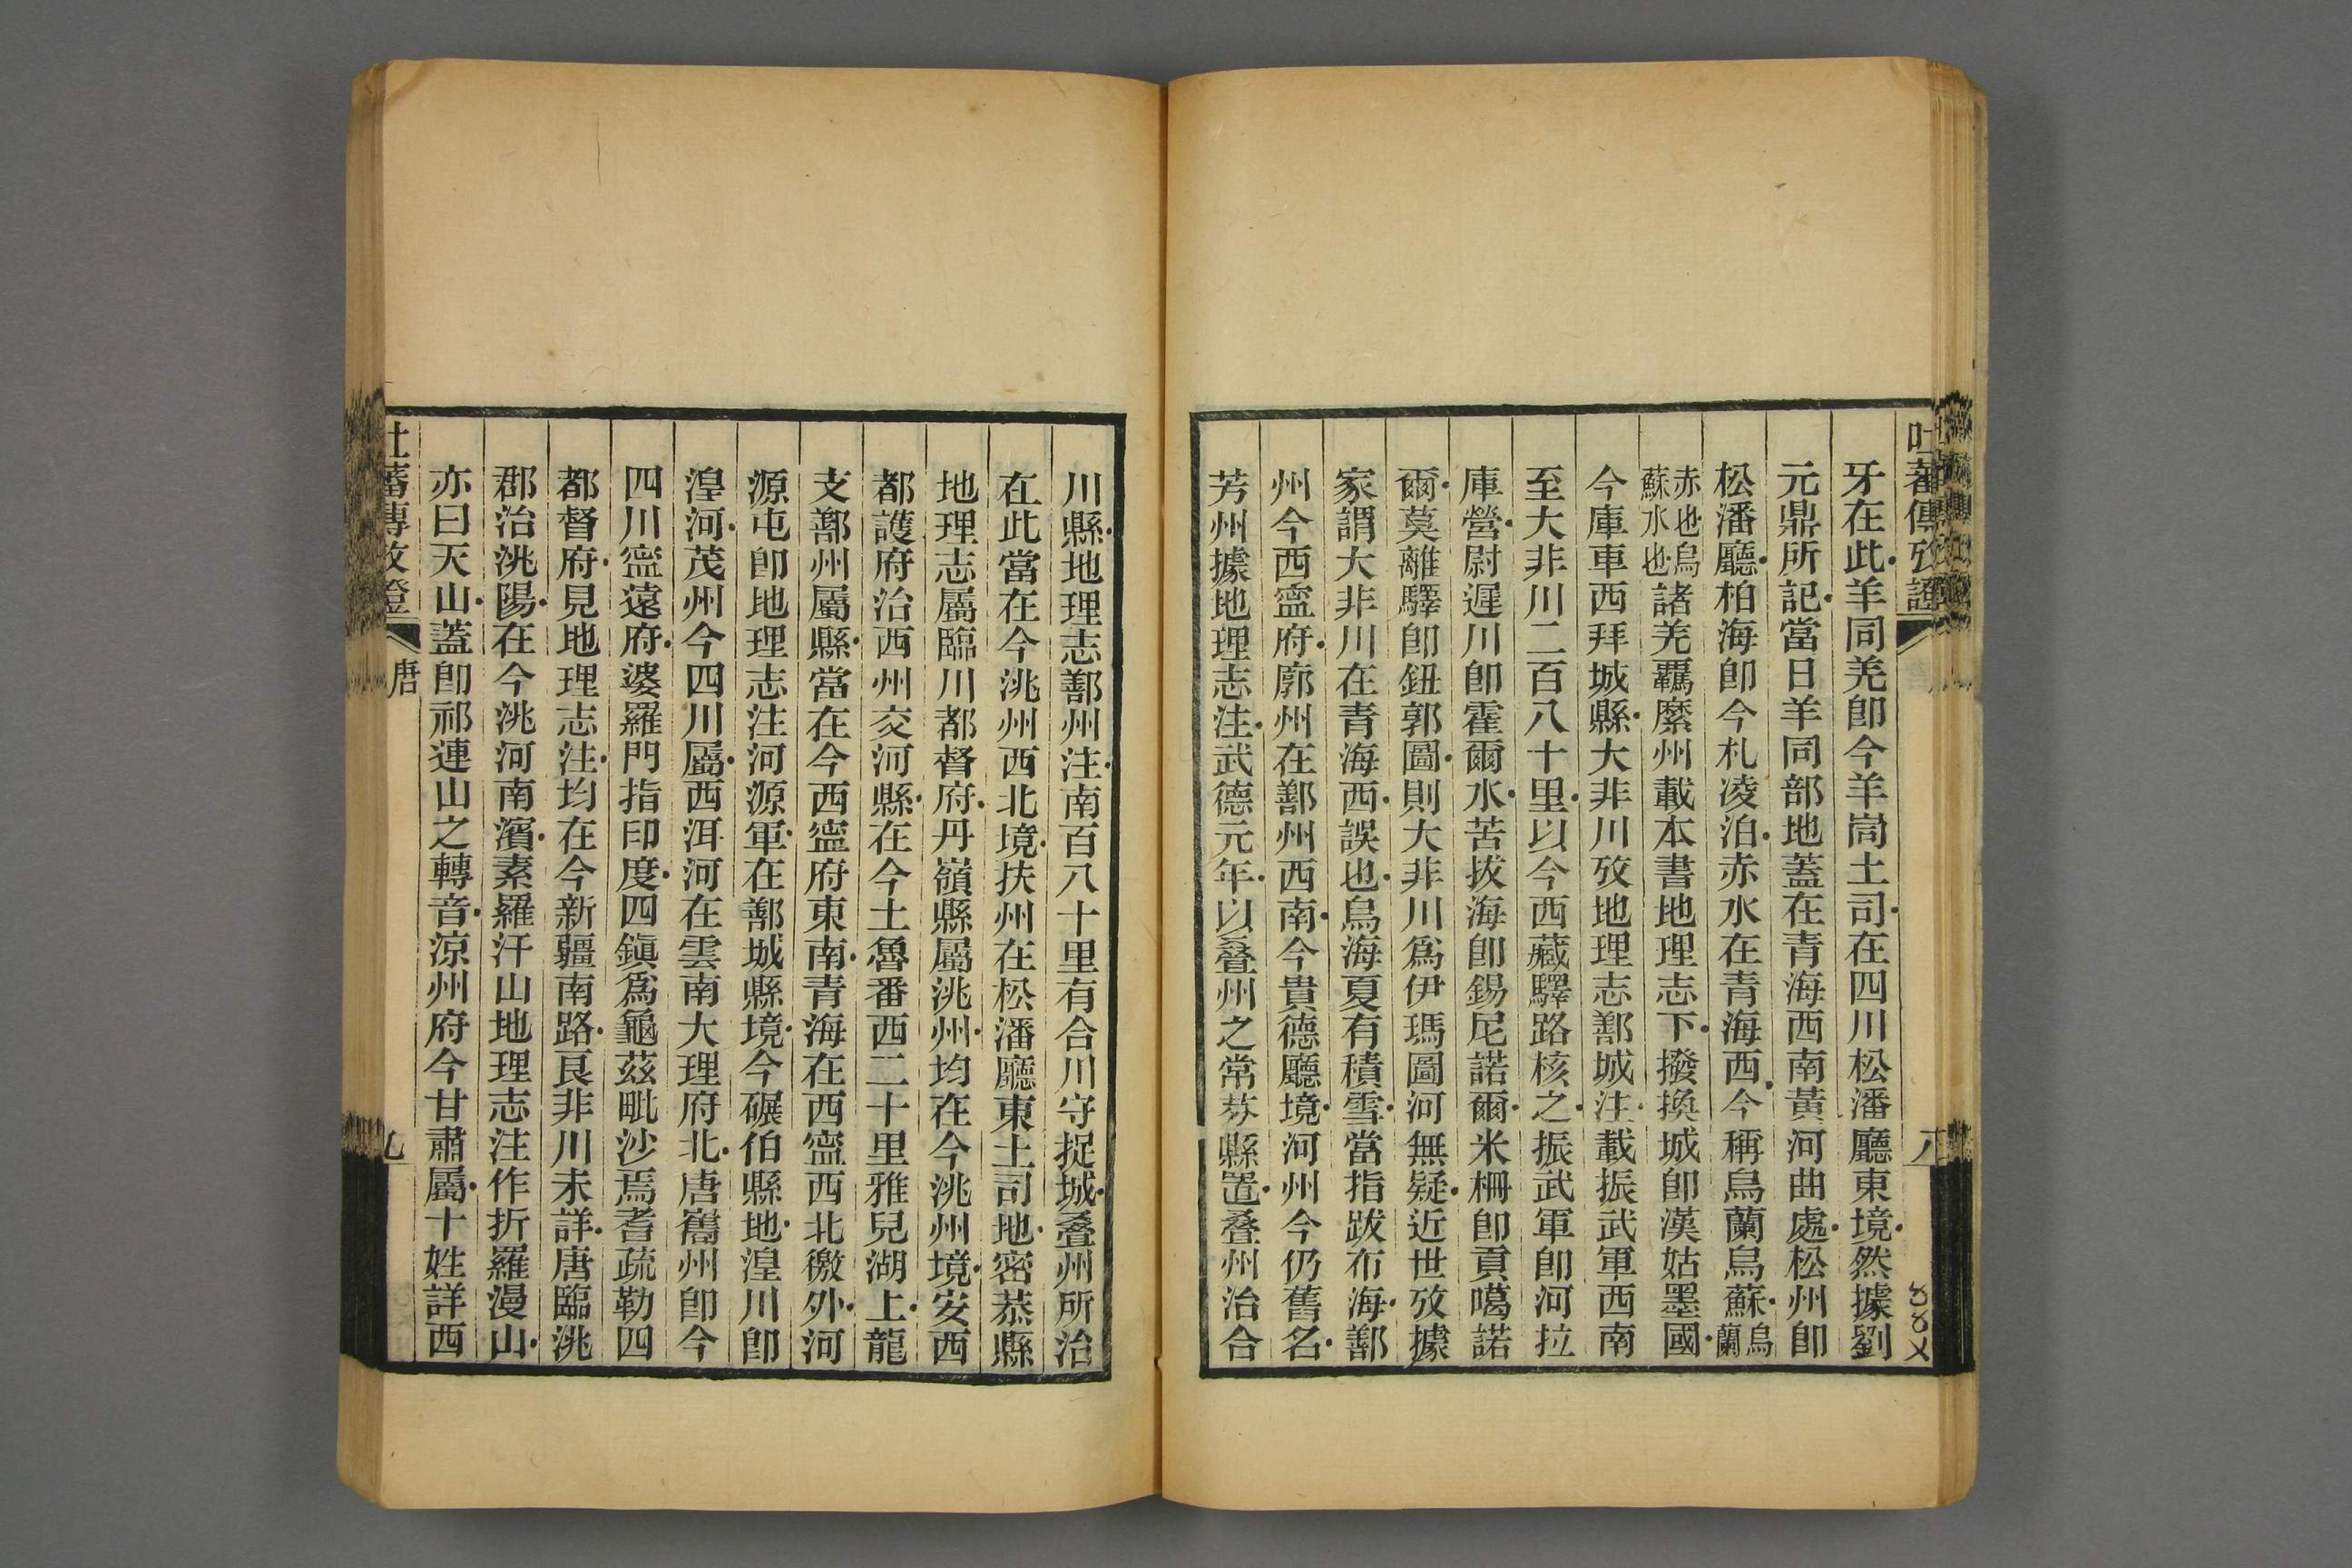 吐蕃傳攷證
八
牙在此羊同羌卽今羊峝土司在四川松潘廳東境然據劉
元鼎所記當日羊同部地蓋在青海西南黃河曲處松州卽
松潘廳柏海卽今札凌泊赤水在青海西今稱烏蘭烏蘇烏蘭
赤也烏蘇水也諸羌羈縻州載本書地理志下撥換城卽漢姑墨國
今庫車西拜城縣大非川攷地理志鄯城注載振武軍西南
至大非川二百八十里以今西藏驛路核之振武軍卽河拉
庫營尉遲川卽霍爾水苦拔海卽錫尼諾爾米柵卽貢噶諾
爾莫離驛卽鈕郭圖則大非川爲伊瑪圖河無疑近世攷據
家謂大非川在青海西誤也烏海夏有積雪當指跋布海鄯
州今西寧府廓州在鄯州西南今貴德廳境河州今仍舊名
芳州據地理志注武德元年以疊州之常芬縣置疊州治合
川縣地理志鄯州注南百八十里有合川守捉城疊州所治
在此當在今洮州西北境扶州在松潘廳東土司地密恭縣
地理志屬臨川都督府丹嶺縣屬洮州均在今洮州境安西
都護府治西州交河縣在今土魯番西二十里雅兒湖上龍
支鄯州屬縣當在今西寧府東南青海在西寧西北徼外河
源屯卽地理志注河源軍在鄯城縣境今碾伯縣地湟川卽
湟河茂州今四川屬西洱河在雲南大理府北唐巂州卽今
四川寧遠府婆羅門指印度四鎭爲龜茲毗沙焉耆疏勒四
都督府見地理志注均在今新疆南路良非川未詳唐臨洮
郡治洮陽在今洮河南濱素羅汗山地理志注作折羅漫山
亦曰天山蓋卽祁連山之轉音涼州府今甘肅屬十姓詳西
吐蕃傳攷證
唐
九